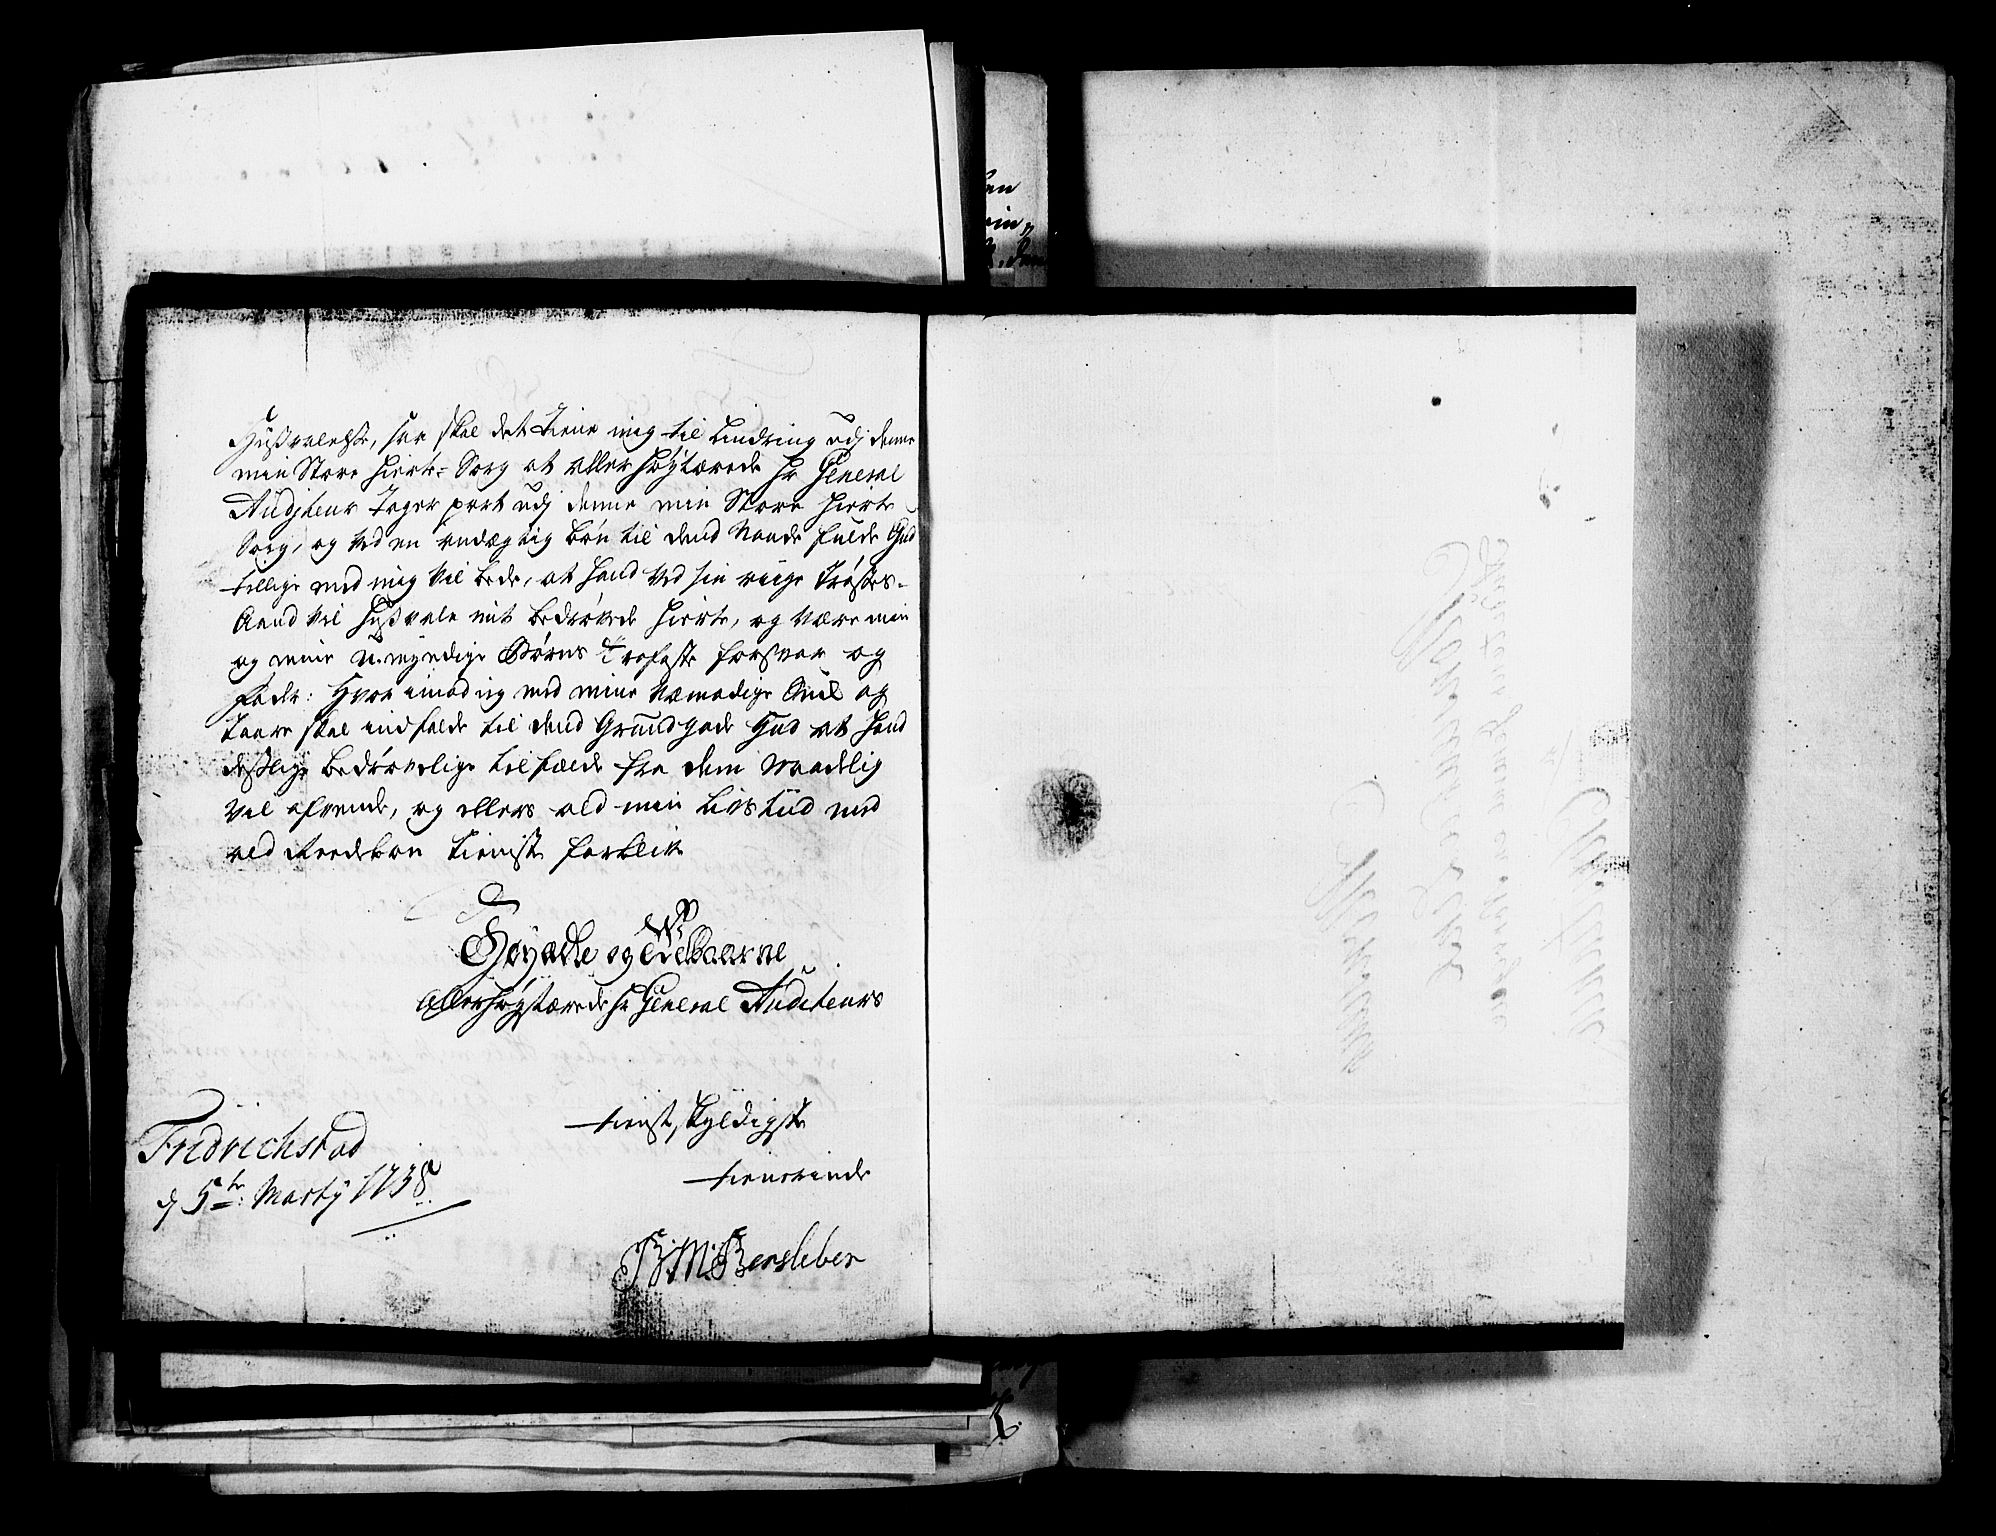 Hußvalelse, saa skal det tiene mig til Lindring udj denne
min Store Hierte-Sorg at allerhøystærede Hr General
Auditeur Tager part udj denne min Store Hierte
Sorg, og ved en andægtig bøn til dend Naade fulde Gud
tillige med mig vil bede, at hand ved sin riige Trøstes-
Aand vil Hußvale mit bedrøvede Hierte, og være min
og mine u-myndige Børns trofaste forsvar og
fader: Hvor imod jeg med mine væmodige Suk og
Taare skal indfalde til dend Grundgode Gud at hand
deßlige bedrøvelige tilfælde fra dem Naadelig
vil afvende, og ellers ald min Livs tiid med
ald Reedebon tieniste forblive
Høyædle og Velbaarne
Allerhøystærede Hr General Auditeurs
tienstskyldigste
tienerinde
Fridrichstad
d 5te Martij 1738
B:M: Bersleben